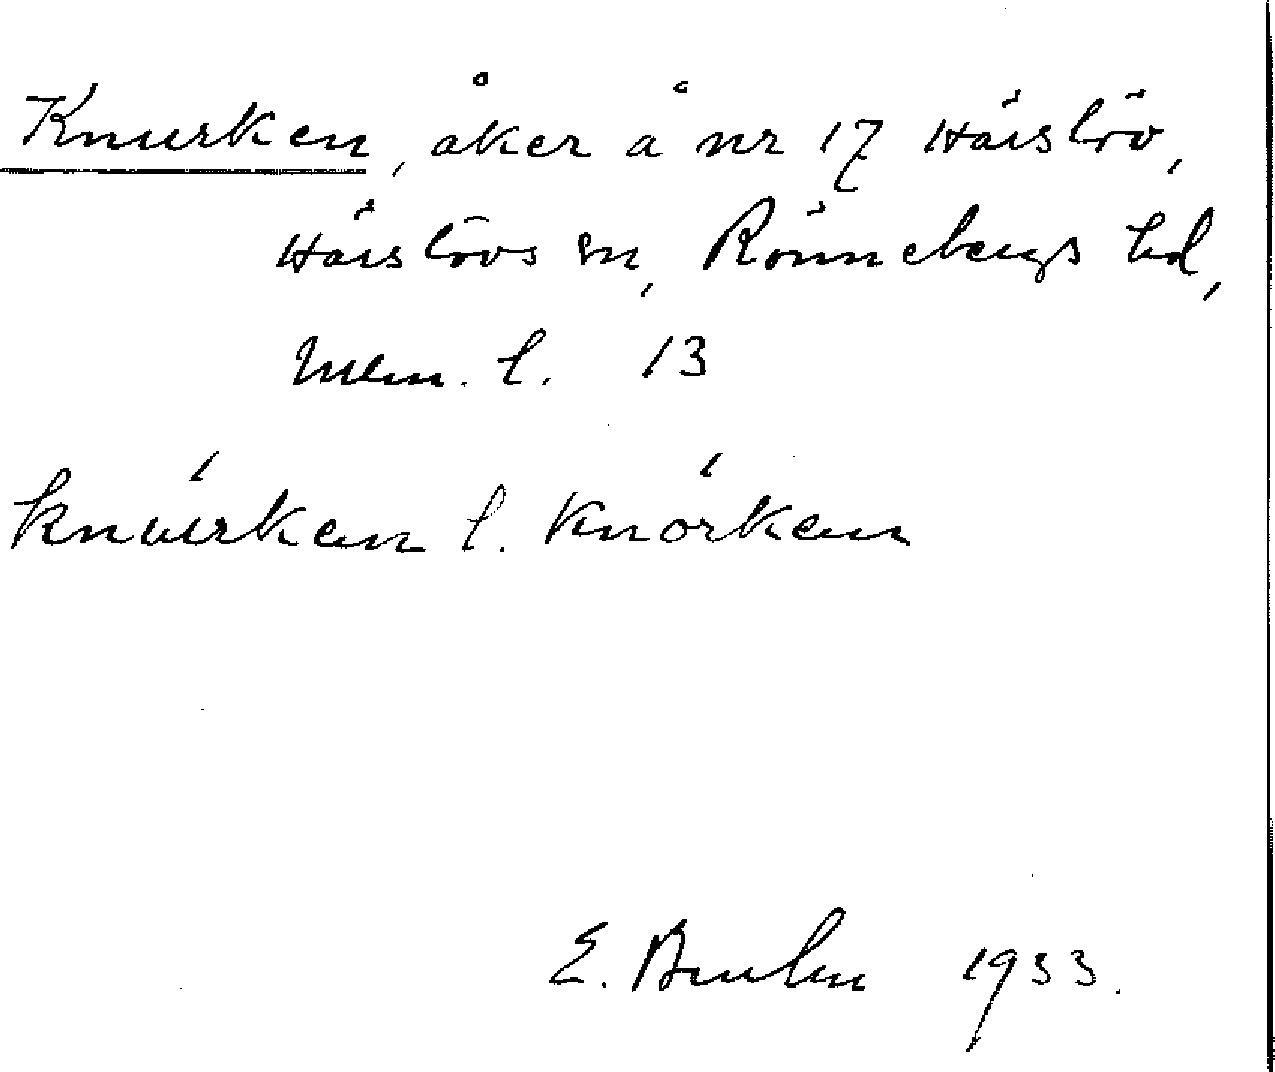 Knurken, åker å nr 17 Häislöv,
Häislövs sn, Rönnebergs hd,
Mlm. l. 13
knúrkan l. knórkan
E. Bruhn 1933.